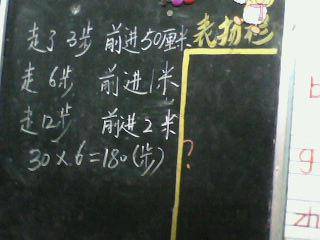 走了3步 前进50厘米
走6步 前进1米
走12步 前进2米
30×6=180(步)
?
表扬栏
b
g
zh